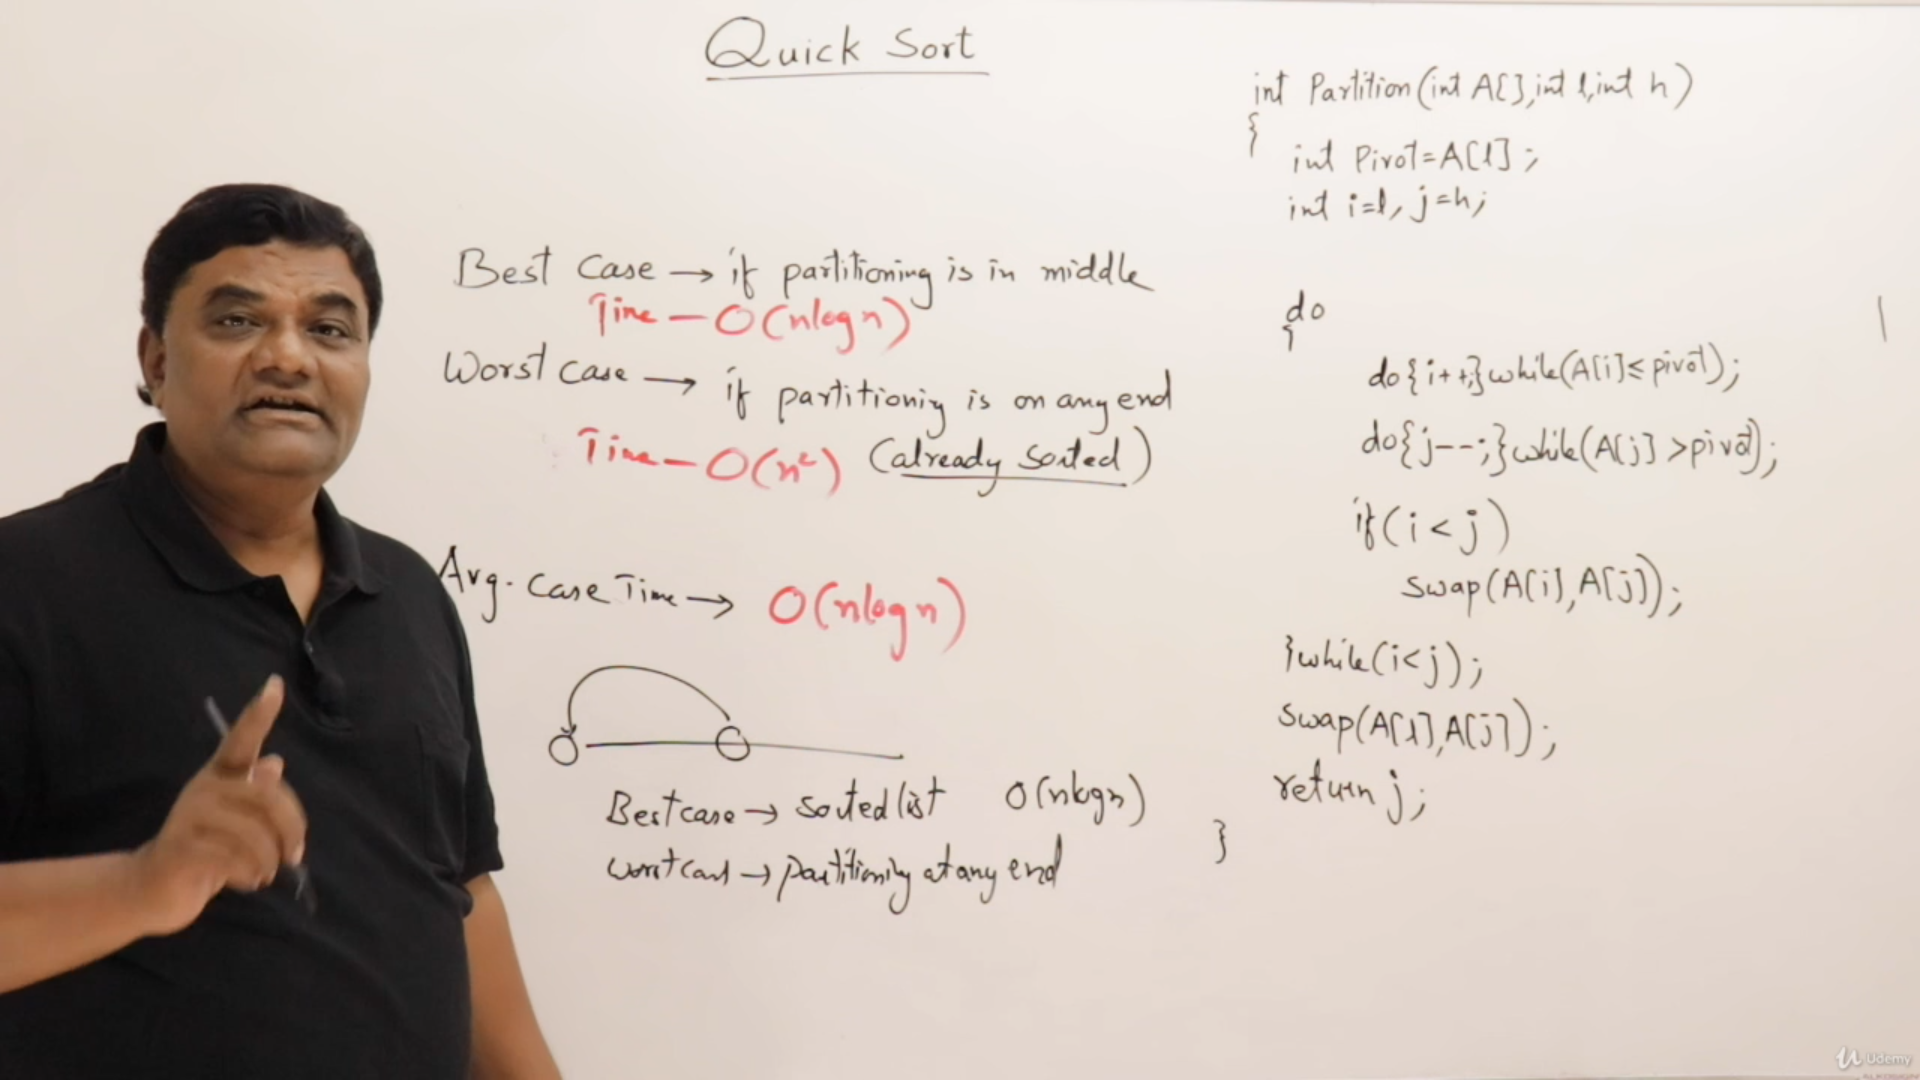 Quick Sort
Best Case → if partitioning is in middle
Time — O(nlogn)
Worst Case → if partitioning is on any end
Time — O(n²) (already sorted)
Avg. Case Time → O(nlogn)
Best case → sorted list O(nlogn)
worst case → partitioning at any end
int Partition(int A[],int l,int h)
{
int Pivot=A[l];
int i=l, j=h;
do
{
do{i++;}while(A[i]≤pivot);
do{j--;}while(A[j]>pivot);
if(i<j)
swap(A[i],A[j]);
}while(i<j);
swap(A[l],A[j]);
return j;
}
Udemy